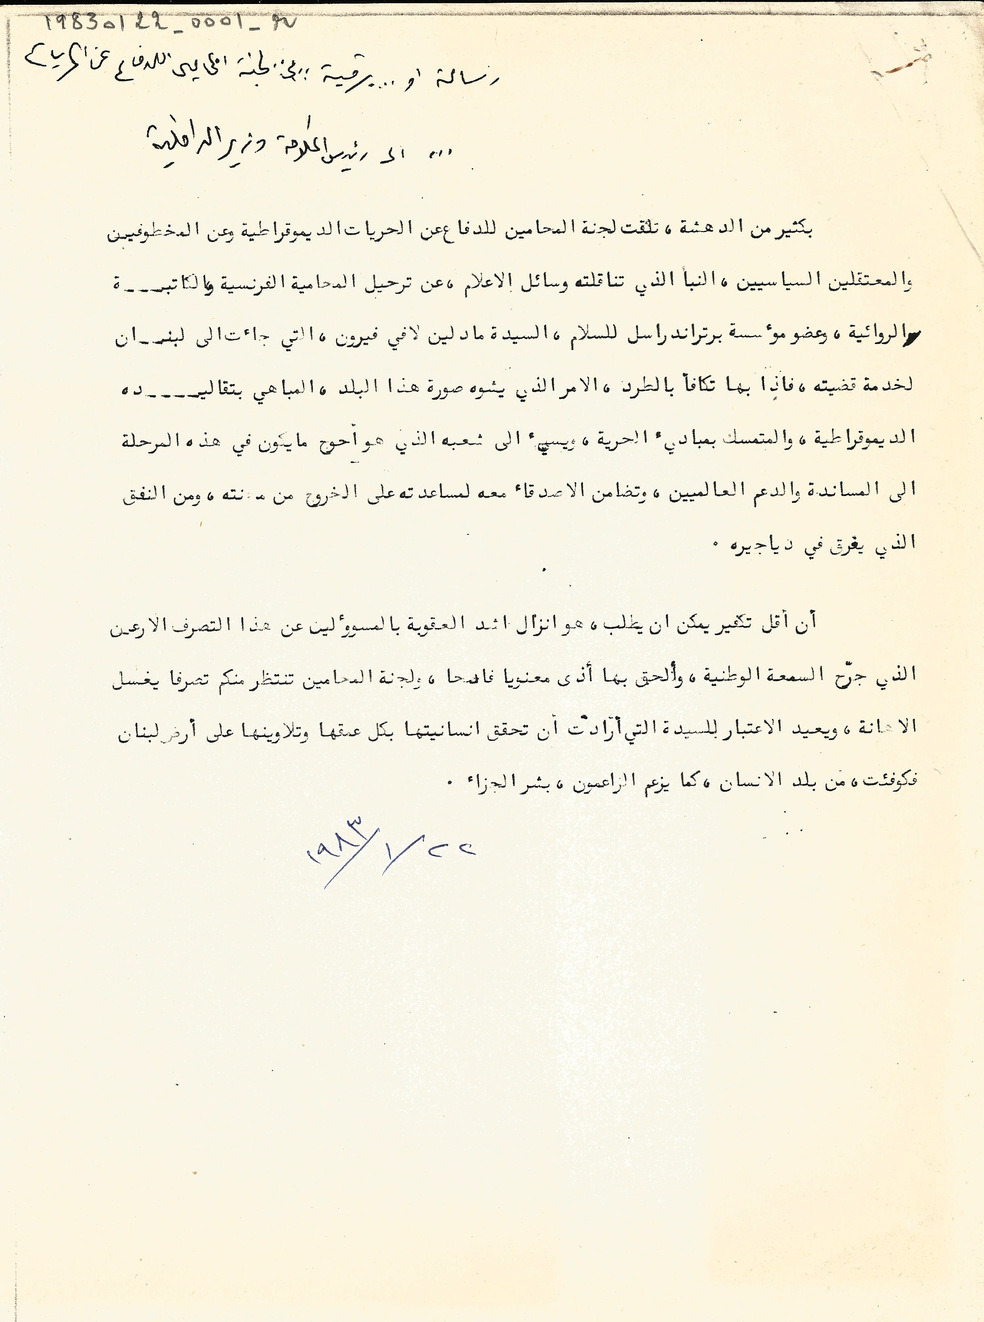 19830122_0001_
رسالة او ... برقية ... لجنة المحامين للدفاع عن الحريات
... الى رئيس الحكومة وزير الداخلية
بكثير من الدهشة ، تلقت لجنة المحامين للدفاع عن الحريات الديموقراطية وعن المخطوفيـن
والمعتقلين السياسيين ، النبأ الذي تناقلته وسائل الاعلام ، عن ترحيل المحامية الفرنسية والكاتبـــــة
والروائية ، وعضو مؤسسة برتراند راسل للسلام ، السيدة مادلين لافي فيرون ، التي جاءت الى لبنـــان
لخدمة قضيته ، فاذا بها تكافأ بالطرد ، الامر الذي يشوه صورة هذا البلد ، المباهي بتقاليـــــده
الديموقراطية ، والمتمسك بمبادىء الحرية ، ويسيء الى شعبه الذي هو أحوج مايكون في هذه المرحلة
الى المساندة والدعم العالميين ، وتضامن الاصدقاء معه لمساعدته على الخروج من محنته ، ومن النفق
الذي يغرق في دياجيره .
أن أقل تكفير يمكن ان يطلب ، هو انزال اشد العقوبة بالمسوولين عن هذا التصرف الارعن
الذي جرّح السمعة الوطنية ، وألحق بها أذى معنويا فادحا ، ولجنة المحامين تنتظر منكم تصرفا يغسل
الاهانة ، ويعيد الاعتبار للسيدة التي أرادت أن تحقق انسانيتها بكل عمقها وتلاوينها على أرض لبنان
فكوفئت ، من بلد الانسان ، كما يزعم الزاعمون ، بشر الجزاء .
٢٢/١/١٩٨٣